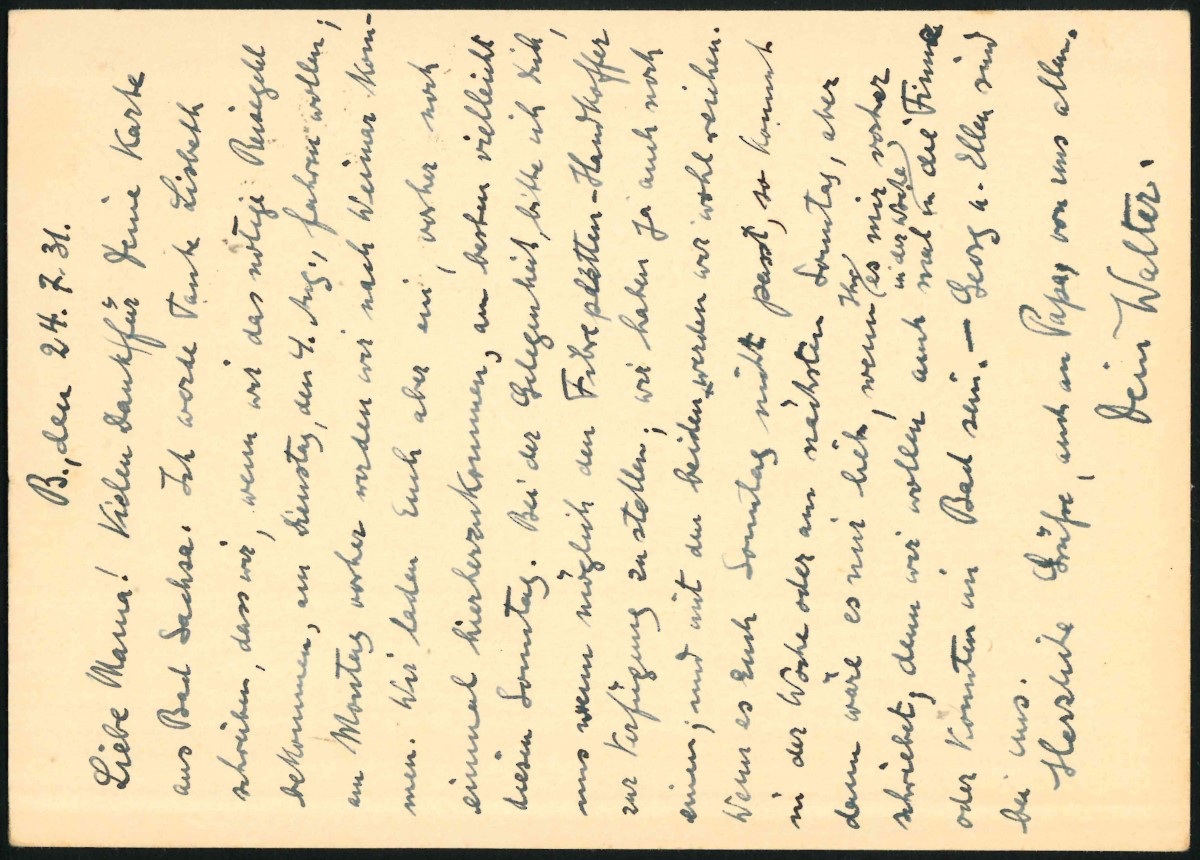 B., den 24. 7. 31.
Liebe Mama! Vielen Dank für Deine Karte
aus Bad Sachsa. Ich werde Tante Lisbeth
schreiben, dass wir, wenn wir das nötige Reisegeld
bekommen, am Dienstag, den 4. Aug., fahren wollen;
am Montag vorher werden wir nach Weimar kom-
men. Wir laden Euch aber ein, vorher noch
einmal hierherzukommen, am besten vielleicht
diesen Sonntag. Bei der Gelegenheit, bitte ich Dich,
uns wenn möglich den Fibreplatten-Handkoffer
zur Verfügung zu stellen; wir haben ja auch noch
einen, und mit den beiden werden wir wohl reichen.
Wenn es Euch Sonntag nicht passt, so kommt
in der Woche oder am nächsten Sonntag, aber
dann wäre es mir lieb, wenn Ihr es mir vorher
schriebet, denn wir wollen auch mal (in der Woche) in die Finne
oder könnten im Bad sein. — Georg u. Ellen sind
bei uns.
Herzliche Grüße, auch an Papa, von uns allen.
Dein Walter.